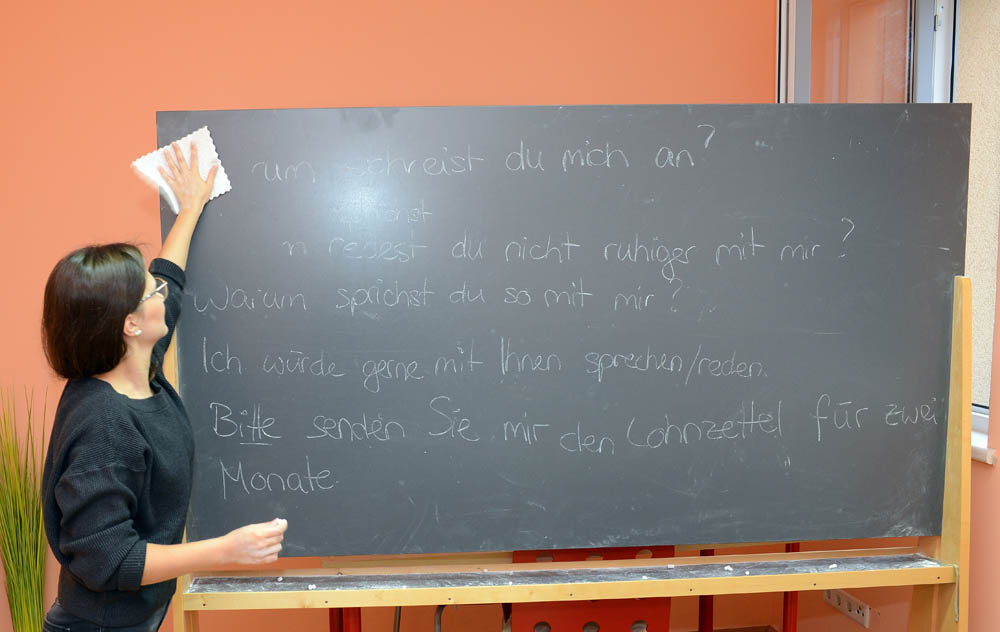 um schreist du mich an?
n redest du nicht ruhiger mit mir?
Warum sprichst du so mit mir?
Ich würde gerne mit Ihnen sprechen/reden.
Bitte senden Sie mir den Lohnzettel für zwei
Monate